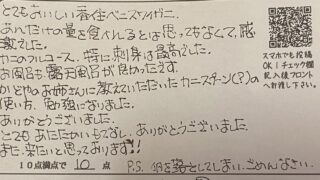 とてもおいしい香住ベニズワイガニ。
あんだけの量を食べれるとは思ってもなくて、感
激でした。
カニのフルコース、特に刺身は最高でした。
お風呂も露天風呂が良かったです。
かどやのお姉さんに教えていただいたカニスプーン(?)の
使い方、勉強になりました。
ありがとうございました。
とてもあたたかいもてなし、ありがとうございました。
また、来たいと思っております!!
10点満点で 10 点 P.S. 羽を落としてしまい、ごめんなさい。
スマホでも投稿
OK!チェック欄
記入後フロント
へお渡し下さい。